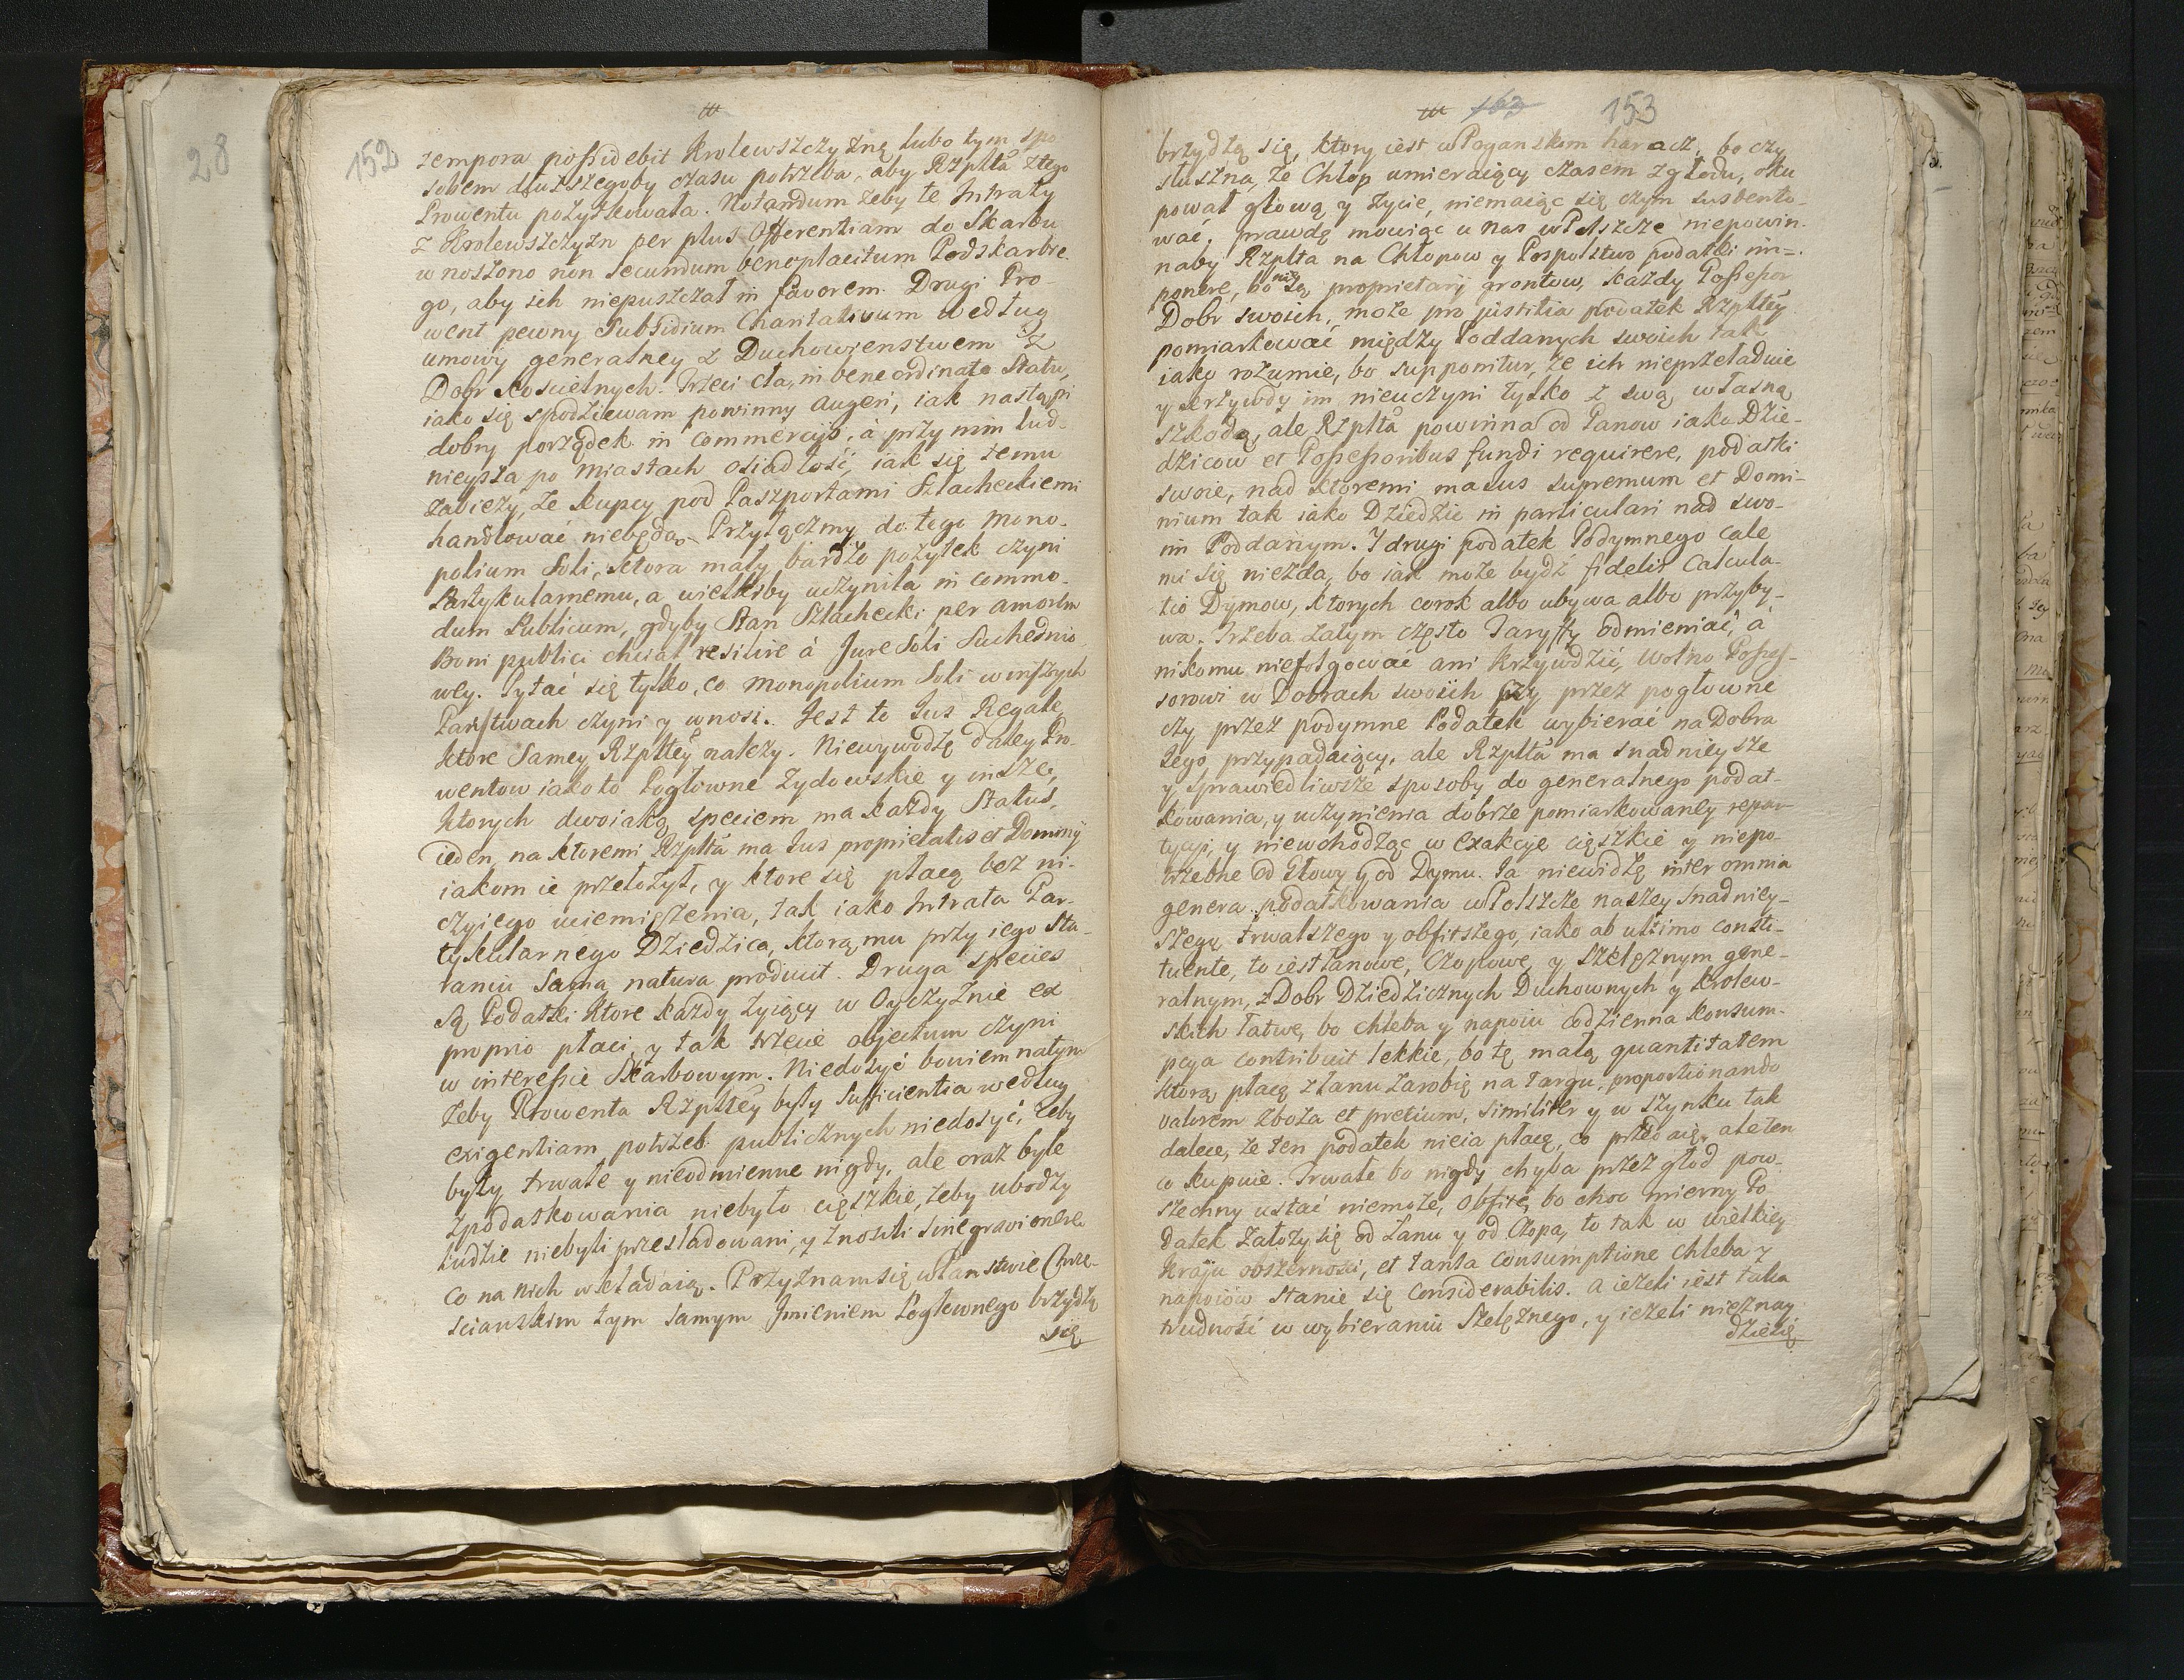 28
152
tempora possidebit Krolewszczyznę lubo tym spo
sobem dłuższegoby czasu potrzeba, aby Rzplta ztego
Prowentu pożytkowała. Notandum żeby te Intraty
z Krolewszczyzn per plus Offerentiam do Skarbu
wnoszono non secundum beneplacitum Podskarbie
go, aby ich niepuszczał in favorem. Drugi Pro-
went pewny Subsidium Charitativum według
umowy generalney z Duchowienstwem z
Dobr Koscielnych. Trzeci cła, in bene ordinato Statu,
iako się spodziewam powinny augeri, iak nastąpi
dobry porządek in commercijs, à przy nim lud-
nieysza po Miastach osiadłość, iak się temu
zabieży, że Kupcy pod Paszportami Szlacheckiemi
handlować niebędą. Przyłączmy do tego Mono-
polium Soli, ktora mały bardzo pożytek czyni
Partykularnemu, a wielkiby uczyniła in commo-
dum Publicum, gdyby Stan Szlachecki per amorem
Boni publici chciał resilire à Jure Soli Suchednio
wey. Pytać się tylko, co Monopolium Soli w inszych
Państwach czyni y wnosi. Jest to Jus Regale
ktore Samey Rzpltey należy. Niewywodzę daley Pro-
wentow iako to Pogłowne Zydowskie y insze,
ktorych dwoiaką speciem ma każdy Status,
ieden, na ktoremi Rzplta ma Jus proprietatis et Dominij
iakom ie przełożył, y ktore się płacą bez ni-
czyiego uciemiężenia, tak iako Intrata Par-
tykularnego Dziedzica, ktorą mu przy iego sta-
raniu Sama natura producit. Druga species
są Podatki ktore każdy żyiący w Oyczyznie ex
proprio płaci, y tak trzecie objectum czyni
w interessie Skarbowym. Niedosyć bowiem natym
żeby Prowenta Rzpltey były Sufficientia według
exigentiam potrzeb publicznych niedosyć, żeby
były trwałe y nieodmienne nigdy, ale oraz byle
zpodatkowania niebyło cięszkie, żeby ubodzy
ludzie niebyli prześladowani, y znosili sine gravi onere
co na nich wkładaią. Przyznam się w Panstwie Chrze-
scianskim tym samym Jmieniem Pogłownego brzydzę
się
163
153
brzydzą się, ktory iest w Poganskim haracz, bo czy
słuszna, że Chłop umieraiący czasem z głodu, oku
pował głowę y życie, niemaiąc się czym sustento-
wać, prawdę mowiąc u nas w Polszcze niepowin-
naby Rzplta na Chłopow y Pospolstwo podatki im=
nie
ponere, bo są proprietarij grontow, każdy Possessor
Dobr swoich, może pro justitia podatek Rzpltey
pomiarkować między Poddanych swoich tak
iako rozumie, bo supponitur, że ich nieprzeładuie
y krzywdy im nieuczyni tylko z swą własną
szkodą, ale Rzplta powinna od Panow iako Dzie-
dzicow et Possessoribus fundi requirere, podatki
swoie, nad ktoremi ma Jus supremum et Domi-
nium tak iako Dziedzic in particulari nad swo-
im Poddanym. I drugi podatek Podymnego cale
mi się niezda, bo iak może bydź fidelis Calcula-
tio Dymow, ktorych corok albo ubywa albo przyby-
wa. Trzeba zatym często Taryffy odmieniać, à
nikomu niefolgować ani krzywdzić, wolno Posses-
sorowi w Dobrach swoiich czy przez pogłowne
czy przez podymne Podatek wybierać na Dobra
Jego przypadaiący, ale Rzplta ma snadnieysze
y sprawiedliwsze sposoby do generalnego podat-
kowania, y uczynienia dobrze pomiarkowaney repar-
tycyi, y niewchodząc w exakcye cięszkie y niepo-
trzebne od Głowy y od Dymu. Ja niewidzę inter omnia
genera podatkowania w Polszcze naszey snadniey-
szego trwalszego y obfitszego, iako ab ultimo consti-
tuente, to iest łanowe, Czopowe, y Szelężnym gene-
ralnym, z Dobr Dziedzicznych Duchownych y Krolew-
skich łatwe, bo chleba y napoiu codzienna konsum-
pcya contribuit lekkie, bo tę małą quantitatem
ktorą płacę z łanu zarobię na targu, proportionando
valorem zboża et pretium, similiter y w szynku tak
dalece, że ten podatek nieia płacę, co przedaię, ale ten
co kupuie. Trwałe bo nigdy chyba przez głod pow-
szechny ustać niemoże, Obfite, bo choć mierny Po
datek założy się od Łanu y od Czopa, to tak w wielkiey
Kraju obszernosci, et tanta consumptione chleba y
napoiow stanie się considerabilis. A ieżeli iest taka
trudność w wybieraniu Szelężnego, y ieżeli nieznay
dzieię